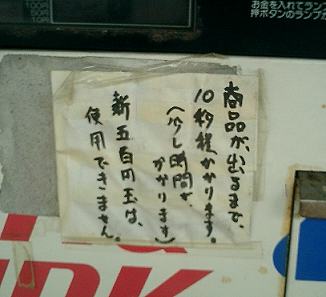 お金を入れてランプ
押ボタンのランプ
商品が、出るまで、
10秒程かかります。
(少し時間が、
かかります)
新五百円玉は、
使用できません。
NK